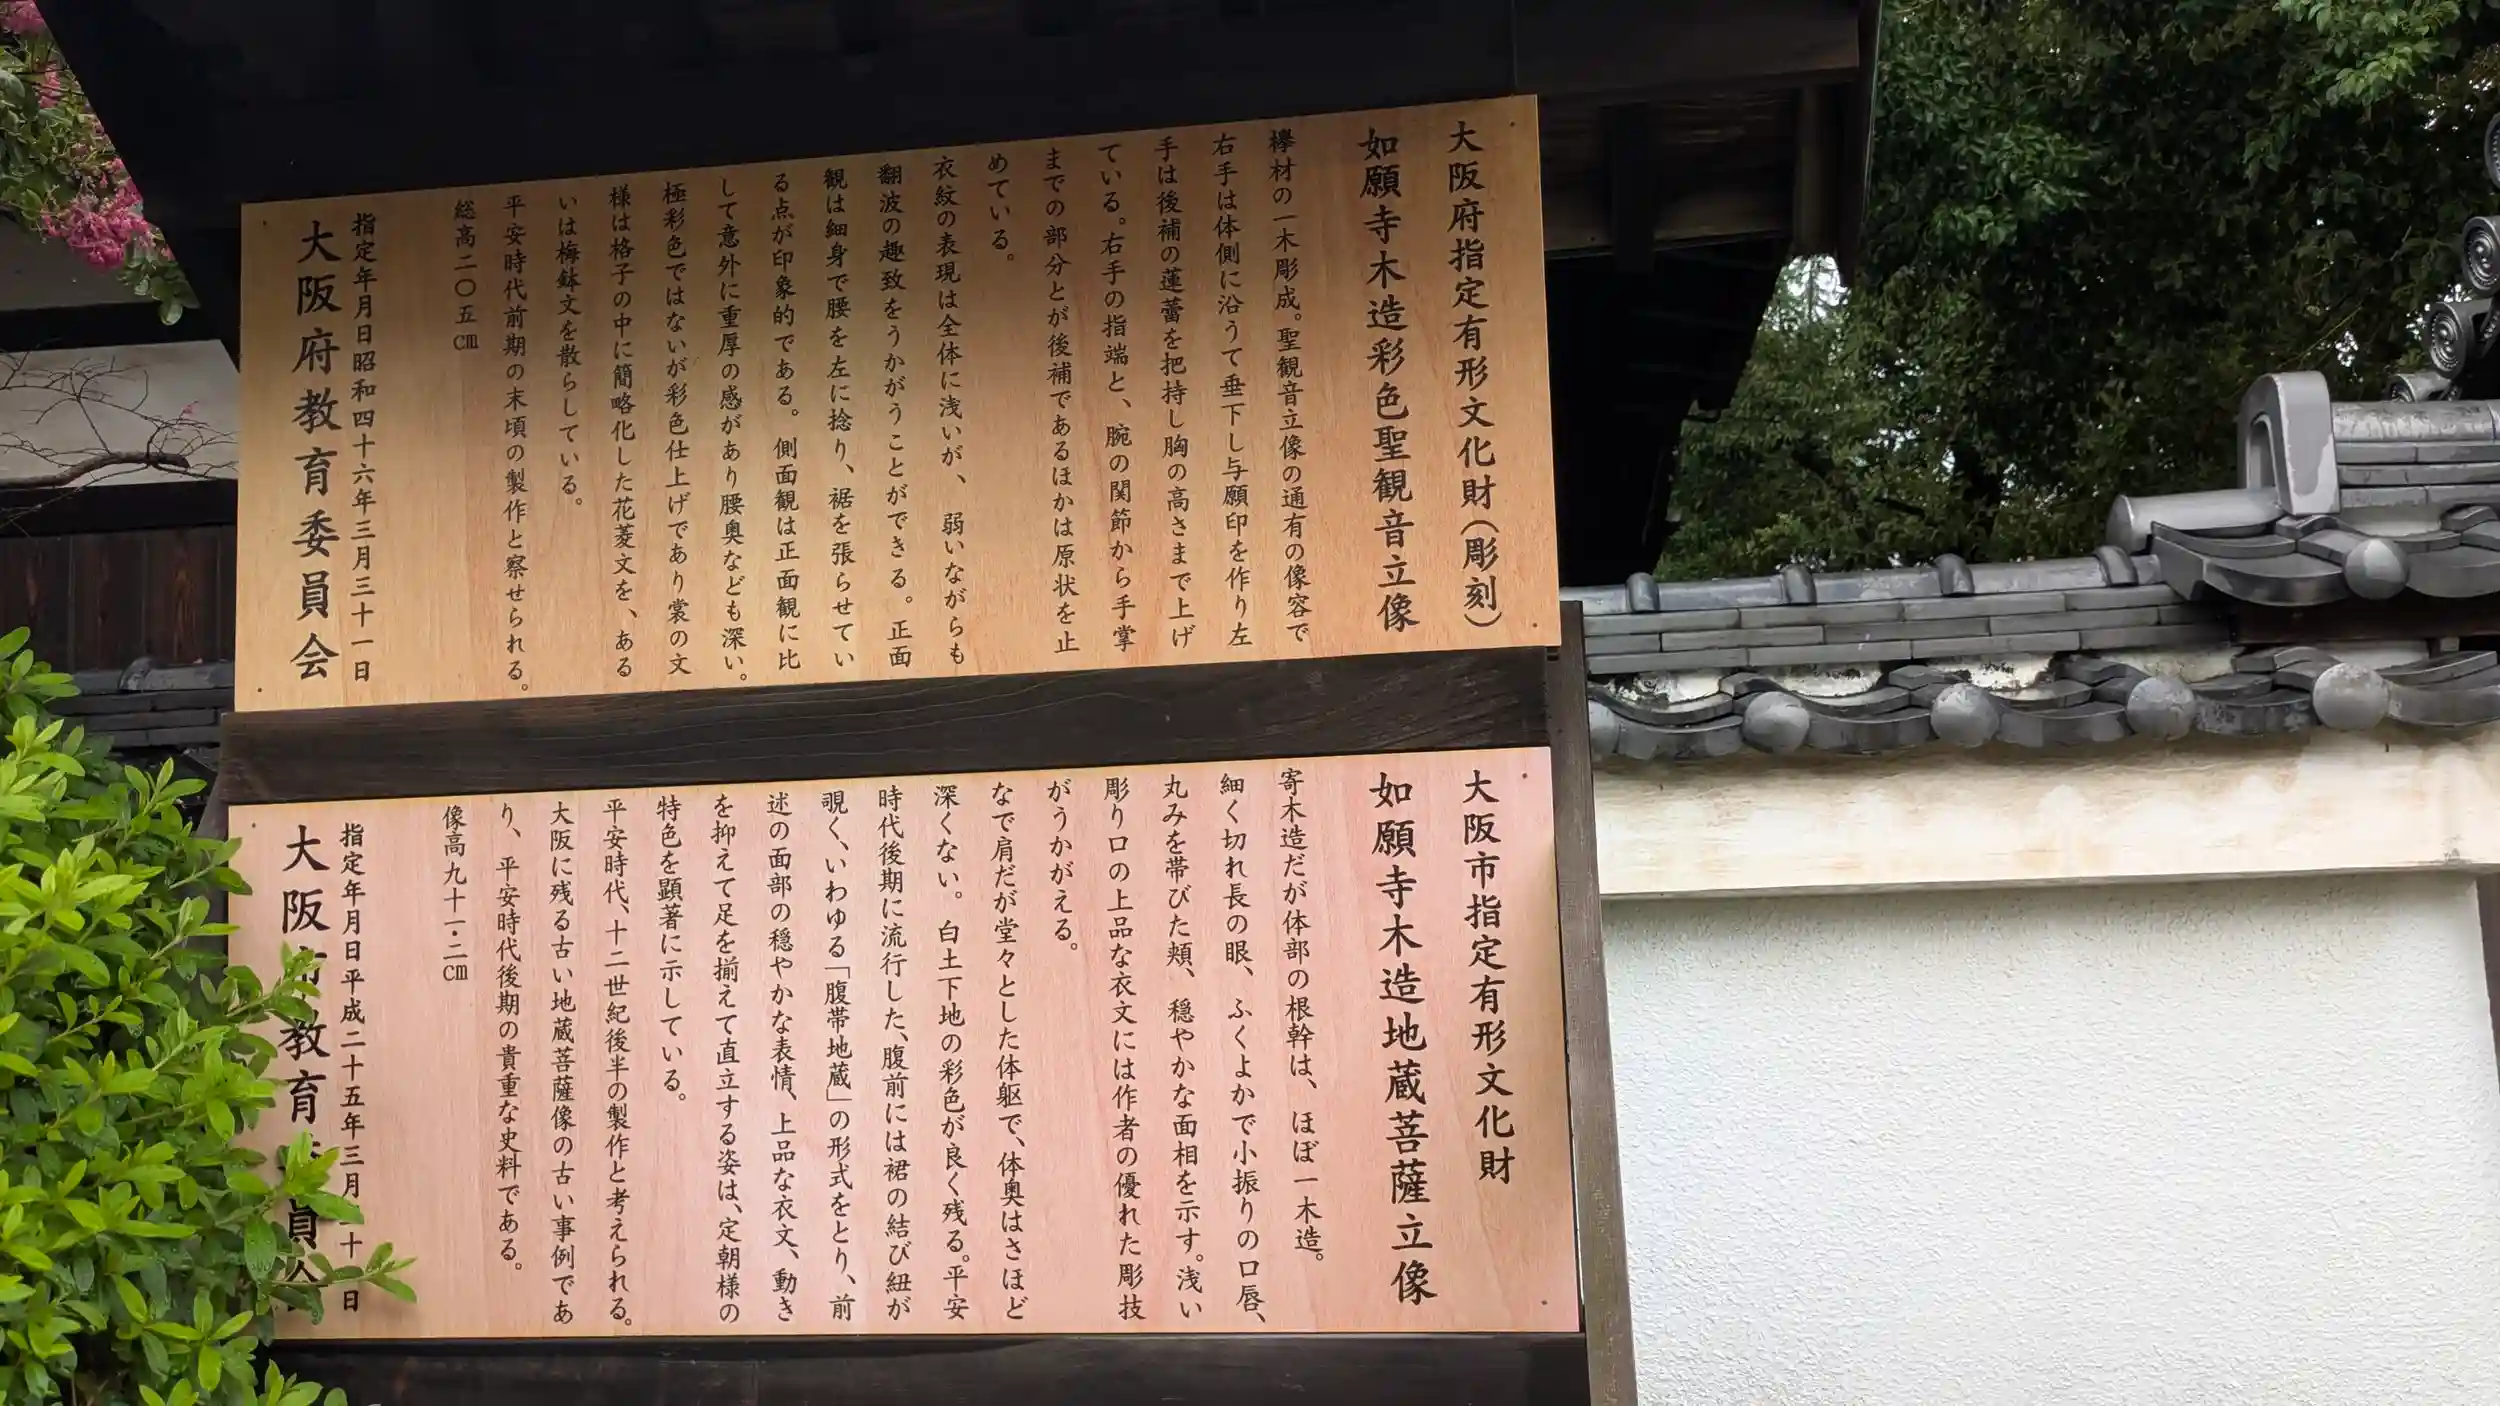 大阪府指定有形文化財(彫刻)
如願寺木造彩色聖観音立像
欅材の一木彫成。聖観音立像の通有の像容で
右手は体側に沿うて垂下し与願印を作り左
手は後補の蓮蕾を把持し胸の高さまで上げ
ている。右手の指端と、腕の関節から手掌
までの部分とが後補であるほかは原状を止
めている。
衣紋の表現は全体に浅いが、弱いながらも
翻波の趣致をうかがうことができる。正面
観は細身で腰を左に捻り、裾を張らせてい
る点が印象的である。側面観は正面観に比
して意外に重厚の感があり腰奥なども深い。
極彩色ではないが彩色仕上げであり裳の文
様は格子の中に簡略化した花菱文を、ある
いは梅鉢文を散らしている。
平安時代前期の末頃の製作と察せられる。
総高二〇五cm
指定年月日昭和四十六年三月三十一日
大阪府教育委員会
大阪市指定有形文化財
如願寺木造地蔵菩薩立像
寄木造だが体部の根幹は、ほぼ一木造。
細く切れ長の眼、ふくよかで小振りの口唇、
丸みを帯びた頬、穏やかな面相を示す。浅い
彫り口の上品な衣文には作者の優れた彫技
がうかがえる。
なで肩だが堂々とした体躯で、体奥はさほど
深くない。白土下地の彩色が良く残る。平安
時代後期に流行した、腹前には裙の結び紐が
覗く、いわゆる「腹帯地蔵」の形式をとり、前
述の面部の穏やかな表情、上品な衣文、動き
を抑えて足を揃えて直立する姿は、定朝様の
特色を顕著に示している。
平安時代、十二世紀後半の製作と考えられる。
大阪に残る古い地蔵菩薩像の古い事例であ
り、平安時代後期の貴重な史料である。
像高九十一・二cm
指定年月日平成二十五年三月 十日
大阪市教育 員会